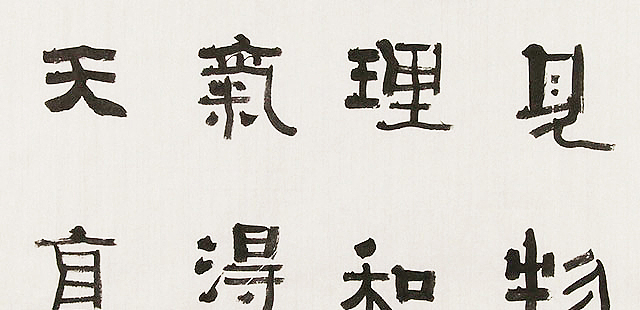 見物
理和
氣得
天